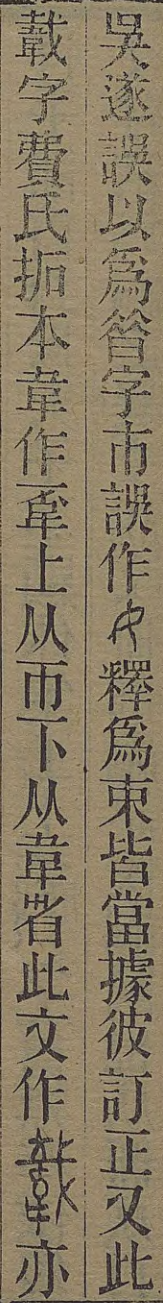 吳遂誤以爲筲字巿誤作釋爲束皆當據彼訂正又此
韍字費氏拓本韋作上从而下从韋省此文作亦